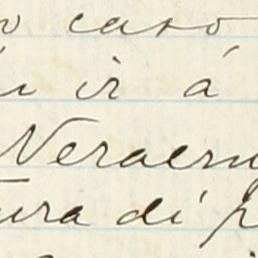 caso
ir á
Veracru
ura di p